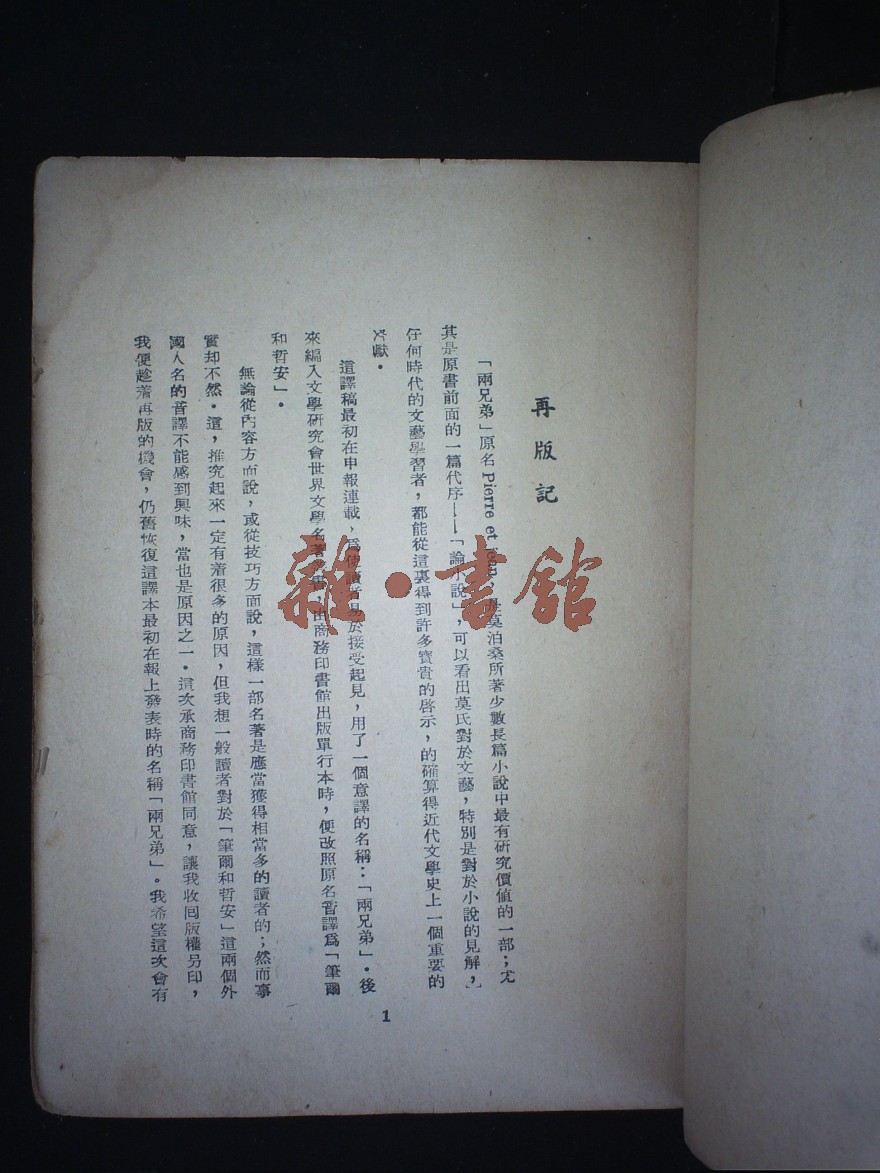 再版記
「兩兄弟」原名 Pierre et 莫泊桑所著少數長篇小說中最有研究價値的一部；尤
其是原書前面的一篇代序——「論小說」，可以看出莫氏對於文藝，特別是對於小說的見解，
任何時代的文藝學習者，都能從這裏得到許多寶貴的啓示，的確算得近代文學史上一個重要的
文獻。
這譯稿最初在申報連載，爲使讀者易於接受起見，用了一個意譯的名稱：「兩兄弟」。後
來編入文學硏究會世界文學名著 書，由商務印書館出版單行本時，便改照原名音譯爲「筆爾
和哲安」。
無論從內容方面說，或從技巧方面說，這樣一部名著是應當獲得相當多的讀者的；然而事
實却不然。這，推究起來一定有着很多的原因，但我想一般讀者對於「筆爾和哲安」這兩個外
國人名的音譯不能感到興味，當也是原因之一。這次承商務印書館同意，讓我收囘版權另印，
我便趁着再版的機會，仍舊恢復這譯本最初在報上發表時的名稱「兩兄弟」。我希望這次會有
1
雜·書館